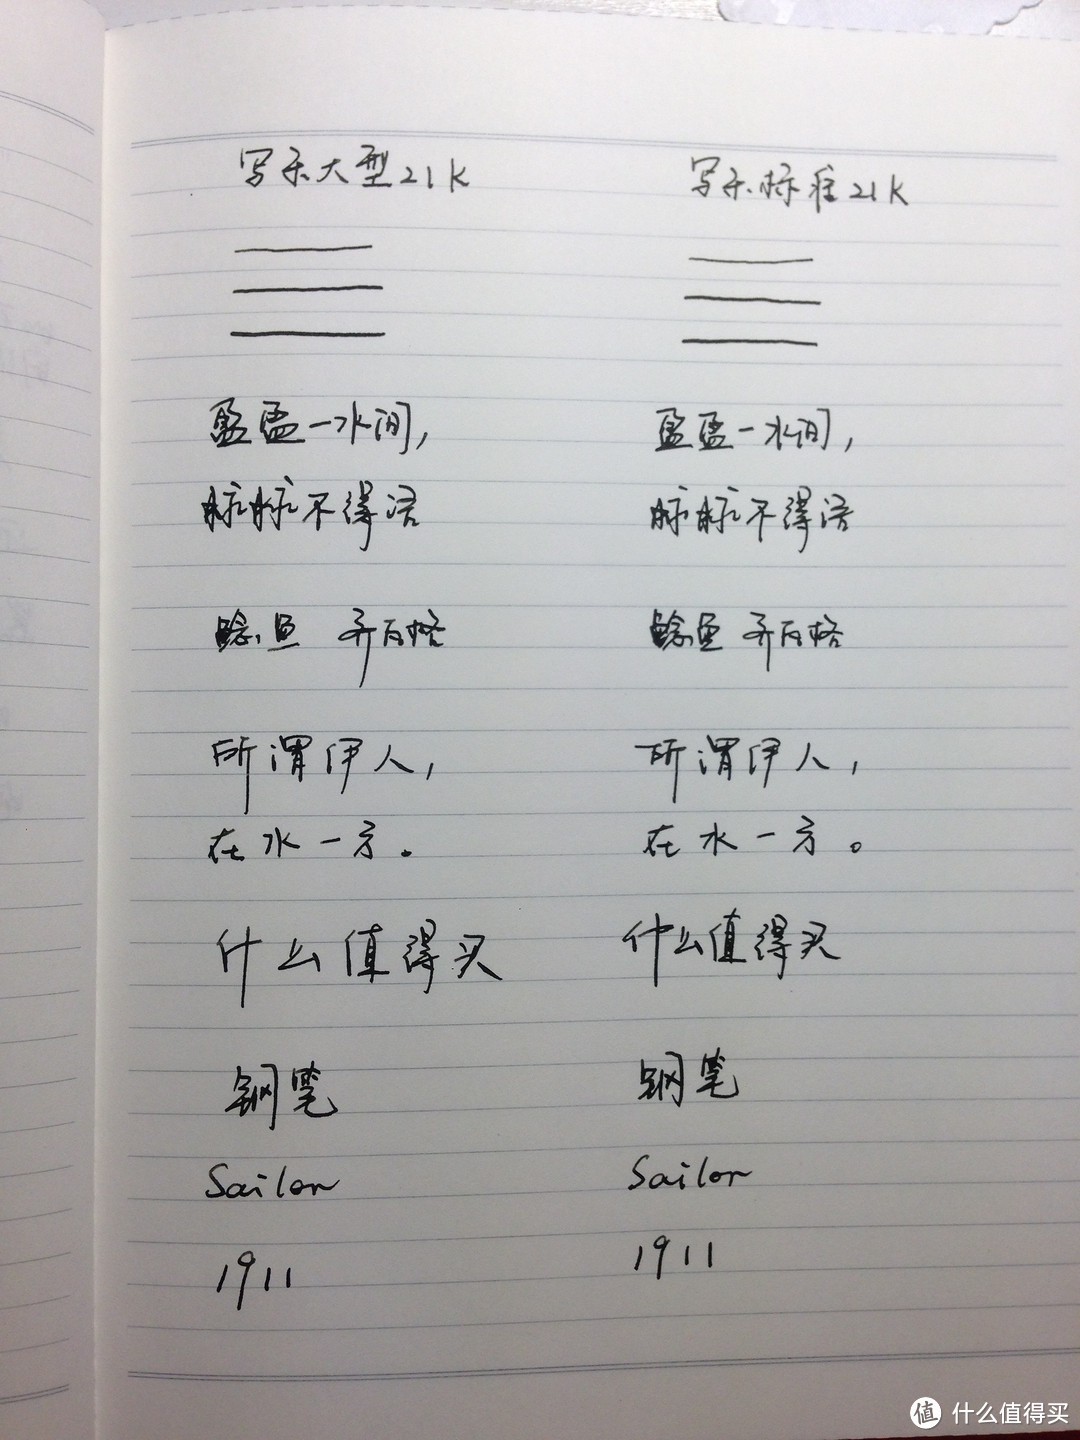 写乐大型21K
盈盈一水间,
脉脉不得语
鲶鱼 齐石格
所谓伊人,
在水一方。
什么值得买
钢笔
Sailor
1911
写乐标准21K
盈盈一水间,
脉脉不得语
鲶鱼
所谓伊人,
在水一方。
什么值得买
钢笔
Sailor
1911
值 什么值得买